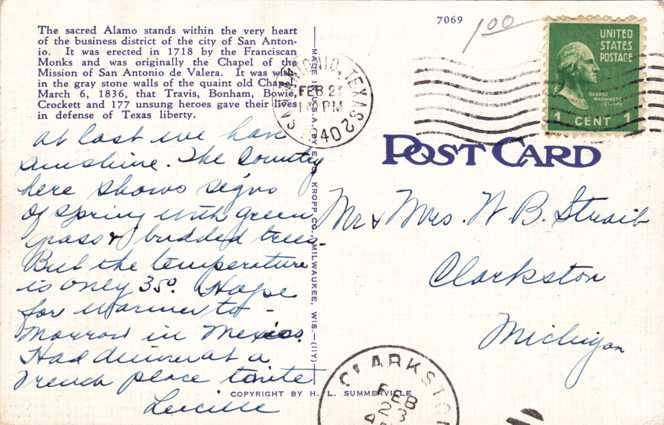 The sacred Alamo stands within the very heart
of the business district of the city of San Anton-
io. It was erected in 1718 by the Franciscan
Monks and was originally the Chapel of the
Mission of San Antonio de Valera. It was
in the gray stone walls of the quaint old
March 6, 1836, that Travis, Bonham, Bowie,
Crockett and 177 unsung heroes gave their lives
in defense of Texas liberty.
At last we have
sunshine. The Country
here shows signs
of Spring with green
grass & budded trees.
But the temperature
is only 35°. Hope
for warmer to-
morrow in Mexico.
Had dinner at a
French place tonite
Lucille
COPYRIGHT BY H. L. SUMMERVILLE
E. C. KROPP CO., MILWAUKEE, WIS.
SAN ANTONIO, TEXAS 2
FEB 2
PM
1940
7069
1.00
UNITED
STATES
POSTAGE
GEORGE
WASHINGTON
1 CENT 1
POST CARD
Mr & Mrs. W B. Straib
Clarkston
Michigan
CLARKSTON
FEB
23